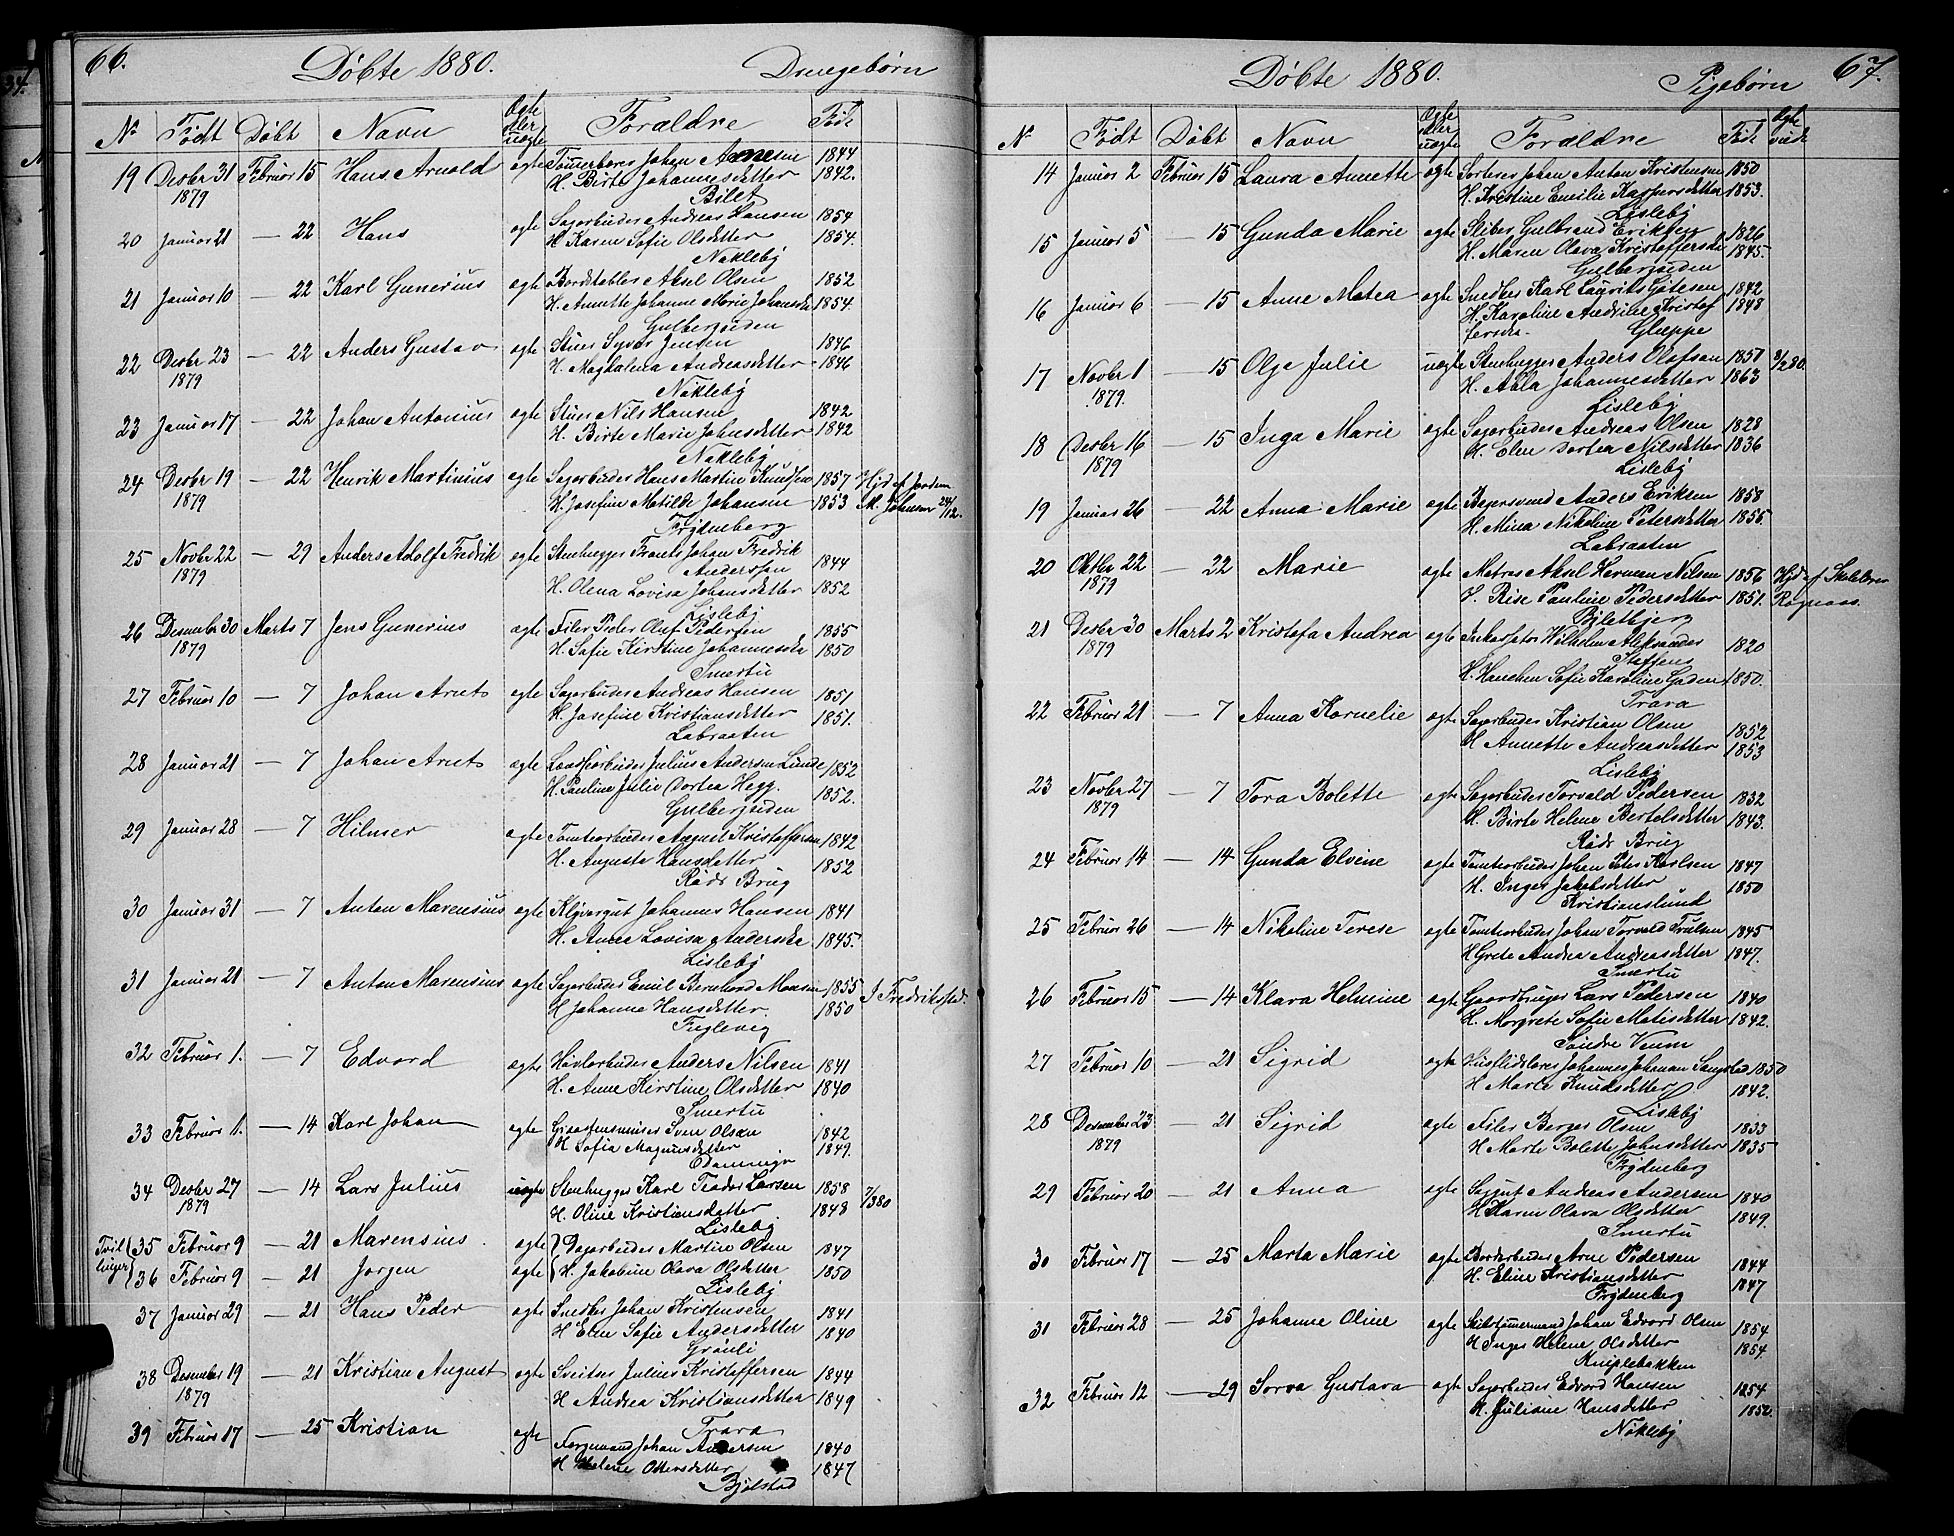 66.
Döbte 1880.
Drengebørn
No Födt Döbt Navn Ægte eller uægte Forældre Föde
19 Desbr 31 Februar 15 Hans Arnold ægte Johan Arnesen 1844
1879 H. Birte Johannesdatter 1842.
Bilet
20 Januar 21 — 22 Hans ægte Sagarbeider Andreas Hansen 1854
H. Karen Sofie Olsdatter 1854.
Nøkleby
21 Januar 10 — 22 Karl Gunerius ægte Bordstabler Aksel Olsen 1852
H. Annette Johanne Marie Johansda 1854.
Gulbergsiden
22 Desbr 23 — 22 Anders Gustav ægte Stuer Syver Jensen 1846
1879 H. Magdalena Andreasdatter 1846
Nökleby
23 Januar 17 — 22 Johan Antonius ægte Stuer Nils Hansen 1842
H. Birte Marie Johnsdatter 1842
Nökleby
24 Desbr 19 — 22 Henrik Martinius ægte Sagarbeider Hans Martin Knudsen 1857 Hjd af Jordm
1879 H. Josefine Matilde Johansen 1853 M. Johnsen 24/12.
Frydenberg
25 Novbr 22 — 29 Anders Adolf Fredrik ægte Stenhugger Frants Johan Fredrik
1879 Anderssen 1844
H. Olena Lovisa Johansdatter 1852
Lisleby
26 Desember 30 Marts 7 Jens Gunerius ægte Filer Peder Oluf Pedersen 1855
1879 H. Sofie Kirstine Johannesda 1850
Smertu
27 Februar 10 — 7 Johan Arnt ægte Sagarbeider Andreas Hansen 1851
H. Josefine Kristiansdatter 1851.
Labraaten
28 Januar 21 — 7 Johan Arnt ægte Julius Andersen Lunde 1852
H. Pauline Julie Dortea Hegg. 1852.
Gulbergsiden
29 Januar 28 — 7 Hilmer ægte Tomtearbeider August Kristoffersen 1842
H. Auguste Hansdatter 1852
Råds Brug
30 Januar 31 — 7 Anton Marensius ægte Klyvergut Johannes Hansen 1841
H. Anna Lovisa Andersda 1845.
Lisleby
31 Januar 21 — 7 Anton Marensius ægte Sagarbeider Emil Bernhard Monsen 1855 I Fredrikstad.
H. Johanne Hansdatter. 1850
Fuglevig
32 Februar 1. — 7 Edvard ægte Hövlarbeider Anders Nilsen 1841
H. Anne Kirstine Olsdatter 1840
Smertu
33 Februar 1. — 14 Karl Johan ægte Sven Olsen 1842
H. Sofia Magnusdatter 1849.
34 Desbr 27 — 14 Lars Julius uægte Stenhugger Karl Teodor Larsen 1858 7/3 80
1879 H. Oline Kristiansdatter 1848
Lisleby
Tvillinger 35 Februar 9 — 21 Marensius. ægte Dagarbeider Martin Olsen 1847
36 Februar 9 — 21 Jørgen ægte H. Jakobine Olava Olsdatter 1850
Lisleby
37 Januar 29 — 21 Hans Peder ægte Snedker Johan Kristensen 1841
H. Elen Sofie Andersdatter 1840
Grönli
38 Desember 19 — 21 Kristian August ægte Sveitser Julius Kristoffersen 1844
1879 H Andrea Kristiansdatter 1849
Trara
39 Februar 17 — 25 Kristian ægte Johan Andersen 1840
H Helene Ottersdatter 1847
Bjølstad
Döbte 1880.
Pigebörn
67.
No Födt Döbt Navn Ægte eller uægte Forældre Föde
14 Januar 2 Februar 15 Laura Annette ægte Sorterer Johan Anton Kristensen 1850
H. Kristine Emilie Kaspersdatter 1853.
Lisleby
15 Januar 5 — 15 Gunda Marie ægte Sliber Gulbrand Eriksen 1826
H. Maren Olava Kristoffersda 1845.
Gulbergsiden
16 Januar 6 — 15 Anne Matea ægte Snedker Karl Laurits Gotesen 1842
H. Karoline Andrine Kristof 1848
fersda. Glæppe
17 Novbr 1 — 15 Olga Julie uægte Stenhugger Anders Olafsen 1850 8/2 80.
1879. H. Abla Johannesdatter 1863
Lisleby
18 Desbr 16 — 15 Inga Marie ægte Sagarbeider Andreas Olsen 1828
1879 H. Elen Dortea Nilsdatter 1836
Lisleby
19 Januar 26 — 22 Anna Marie ægte Bagersvend Anders Eriksen 1858
H. Mina Nikoline Petersdatter 1855.
Labraaten
20 Oktbr 22 — 22 Marie ægte Matros Aksel Herman Nilsen 1856 Hjd af Skolelærer
1879 H. Rise Pauline Pedersdatter 1851. Rognaas.
Biletbjerg
21 Desbr 30 Marts 2 Kristofa Andrea ægte Wilhelm Aleksander
1879 Steffens 1820
H. Hanchen Sofie Karoline Gaden 1850.
Trara
22 Februar 21 — 7 Anna Kornelie ægte Sagarbeider Kristian Olsen 1852
H Annette Andreasdatter 1853
Lisleby
23 Novbr 27 — 7 Tora Bolette ægte Sagarbeider Torvald Pedersen 1832
1879 H. Birte Helene Bertelsdatter 1843.
Råds Brug
24 Februar 14 — 14 Gunda Elvine ægte Tomtearbeider Johan Peter Karlsen 1847
H. Inger Jakobsdatter 1850
Kristianslund
25 Februar 26 — 14 Nikoline Terese ægte Tomtearbeider Johan Torvald Trulsen 1845
H Grete Andrea Andreasdatter 1847.
Smertu
26 Februar 15 — 14 Klara Helmine ægte Gaardbruger Lars Pedersen 1840
H. Margrete Sofie Matisdatter 1842.
Söndre Veum
27 Februar 10 — 21 Sigrid ægte Johannes Johansen Sangstad 1850
H Marte Knudsdatter 1842.
Lisleby
28 Desember 23 — 21 Sigrid ægte Filer Berger Olsen 1833
1879 H Marte Bolette Johnsdatter 1835
Frydenberg
29 Februar 20 — 21 Anna ægte Saggut Andreas Andersen 1840
H Karen Olava Olsdatter 1849.
Smertu
30 Februar 17 — 25 Marta Marie ægte Bordarbeider Arne Pedersen 1844
H. Eline Kristiansdatter 1847
Frydenberg
31 Februar 28 — 25 Johanne Oline ægte Skibstømermand Johan Edvard Olsen 1854
H Inger Helene Olsdatter 1854.
Kniplebakken
32 Februar 12 — 29 Sorva Gustava ægte Sagarbeider Edvard Hansen 1854
H. Juliane Hansdatter 1852.
Nökleby